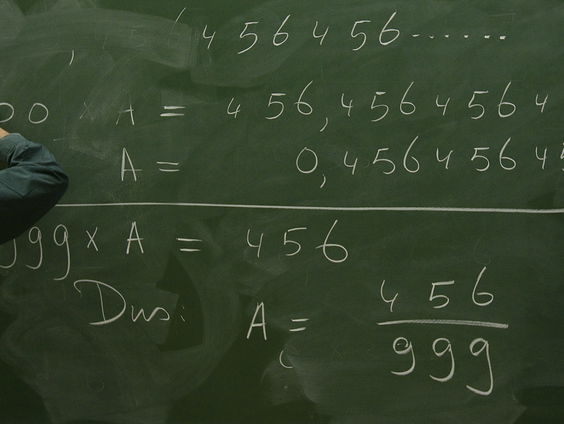 456456.......
00 × A = 456,4564564
A = 0,45645645
999 × A = 456
Dus: A = 456/999